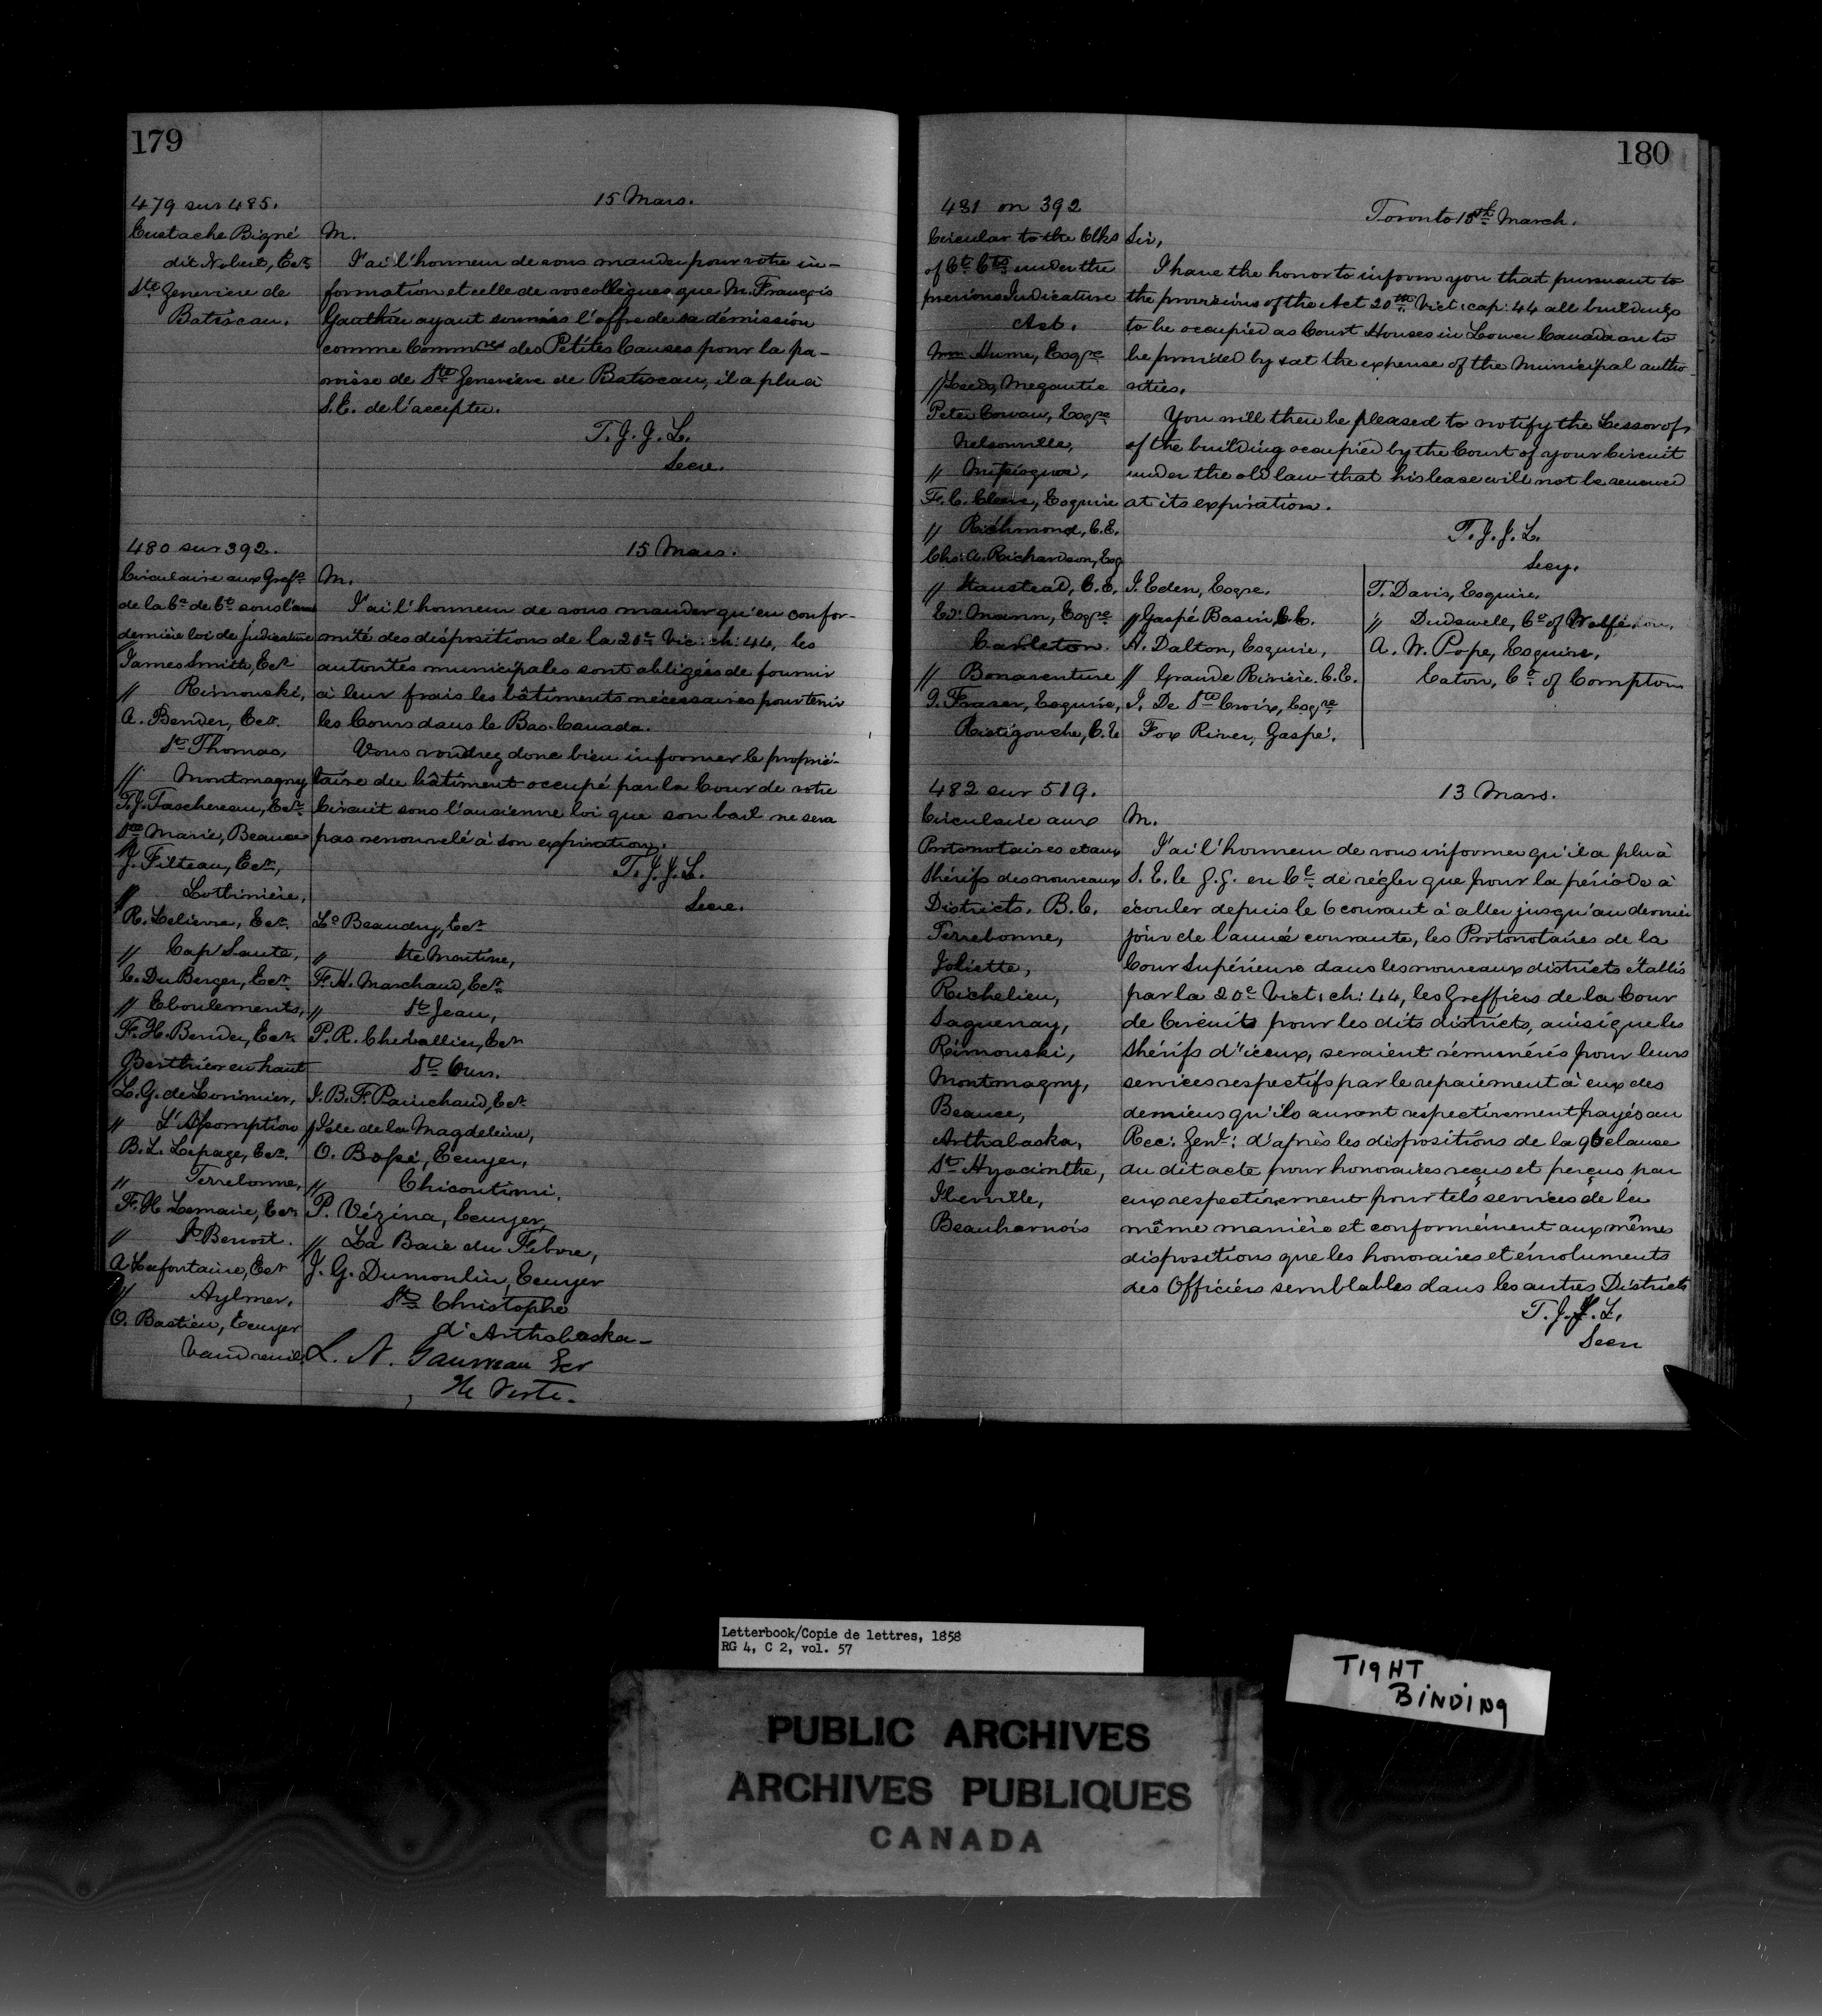 179
479 sur 485.
15 Mars.
Eustache Bigné
dit Nobert, Ecr
Ste Genevieve de
Batiscan.
M.
J'ai l'honneur de vous mander pour votre in-
formation et celle de vos collègues que M. François
Gauthier ayant soumis l'offre de sa démission
comme Commres des Petites Causes pour la pa-
roisse de Ste Geneviève de Batiscan, il a plu à
S.E. de l'accepter.
T.J.J.L.
Secre.
480 sur 392.
15 Mars.
Circulaire aux Grefs
de la Cr de Ct sous l'anc
dernière loi de judicature
James Smith, Ecr
" Rimouski,
A. Bender, Ecr.
St Thomas,
" Montmagny
T.J. Taschereau, Ecr
Ste Marie, Beauce
J. Filteau, Ecr,
" Lotbinière,
R. Lelievre, Ecr.
" Cap Santé,
C. Du Berger, Ecr.
" Eboulements,
F. H. Bender, Ecr.
Berthier en haut
L.G. de Lorimier,
" L'Assomption
B.L. Lepage, Ecr.
" Terrebonne,
F.H. Lemaire, Ecr
" St Benoit.
A Lafontaine, Ecr
" Aylmer,
O. Bastien, Ecuyer
Vaudreuil.
M.
J'ai l'honneur de vous mander qu'en confor-
mité des dispositions de la 20e Vic: ch: 44, les
autorités municipales sont obligées de fournir
à leur frais les bâtiments nécessaires pour tenir
les Cours dans le Bas-Canada.
Vous voudrez donc bien informer le proprié-
taire du bâtiment occupé par la Cour de votre
Circuit sous l'ancienne loi que son bail ne sera
pas renouvelé à son expiration.
T.J.J.L.
Secre.
Ls Beaudry, Ecr
" Ste Martine,
F. H. Marchand, Ecr.
" St Jean,
P. R. Chevallier, Ecr
St Ours.
J. B. F. Painchaud, Ecr.
" Isle de la Magdeleine,
O. Bossé, Ecuyer,
" Chicoutimi,
P. Vézina, Ecuyer
" La Baie du Febvre,
J. G. Dumoulin, Ecuyer
St Christophe
d'Arthabaska-
L. N. Gauvreau Ecr
Ile Verte.
180
481 on 392
Toronto 15th March.
Circular to the Clks
of Ct Cts under the
previous Judicature
Act.
Wm Hume, Esqre
" Leeds, Megantic
Peter Cowan, Esqre
Nelsonville,
" Missisquoi,
F. C. Cleeve, Esquire
" Richmond, C.E.
Chs: A. Richardson, Esq
" Stanstead, C.E.
Ed: Mann, Esqre
Carleton.
" Bonaventure
G. Fraser, Esquire,
Ristigouche, C.E
Sir,
I have the honor to inform you that pursuant to
the provisions of the Act 20th Vict: cap: 44 all buildings
to be occupied as Court Houses in Lower Canada are to
be provided by & at the expense of the Municipal autho-
rities.
You will then be pleased to notify the Lessor of
of the building occupied by the Court of your Circuit
under the old law that his lease will not be renewed
at its expiration.
T.J.J.L.
Secy.
J. Eden, Esqre.
" Gaspé Basin, C.E.
H. Dalton, Esquire,
" Grande Rivière. C.E.
J. De Ste Croix, Esqre
Fox River, Gaspé.
T. Davis, Esquire.
" Dudswell, Co of Wolfe
A. W. Pope, Esquire,
Eaton, Co of Compton
482 sur 519.
13 Mars.
Circulaire aux
Protonotaires et aux
Shérifs des nouveaux
Districts. B.C.
Terrebonne,
Joliette,
Richelieu,
Saguenay,
Rimouski,
Montmagny,
Beauce,
Arthabaska,
St Hyacinthe,
Iberville,
Beauharnois
M.
J'ai l'honneur de vous informer qu'il a plu à
S. E. le G.G. en Cl de régler que pour la période à
écouler depuis le 6 courant à aller jusqu'au dernier
jour de l'année courante, les Protonotaires de la
Cour Supérieure dans les nouveaux districts établis
par la 20e Vict: ch: 44, les Greffiers de la Cour
de Circuit pour les dits districts, ainsi que les
Shérifs d'iceux, seraient rémunérés pour leurs
services respectifs par le repaiement à eux des
deniers qu'ils auront respectivement payés au
Rec: Genl: d'après les dispositions de la 96 clause
du dit acte pour honoraires reçus et perçus par
eux respectivement pour tels services de la
même manière et conformément aux mêmes
dispositions que les honoraires et émoluments
des Officiers semblables dans les autres Districts
T.J.J.L.
Secre
Letterbook/Copie de lettres, 1858
RG 4, C 2, vol. 57
TIGHT
BINDING
PUBLIC ARCHIVES
ARCHIVES PUBLIQUES
CANADA